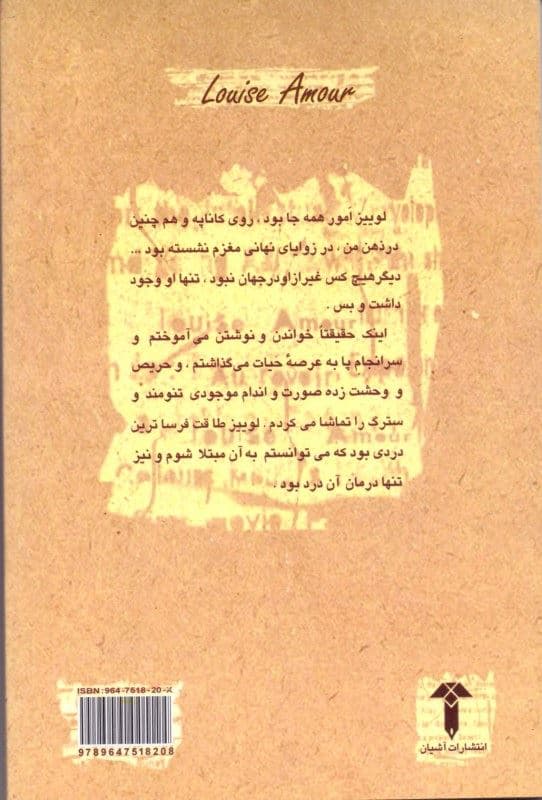 Louise Amour
لوییز اَمور همه جا بود ، روی کاناپه و هم چنین
درذهن من ، در زوایای نهانی مغزم نشسته بود ...
دیگرهیچ کس غیرازاودرجهان نبود ، تنها او وجود
داشت و بس .
اینک حقیقتاً خواندن و نوشتن می آموختم و
سرانجام پا به عرصهٔ حیات می‌گذاشتم ، و حریص
و وحشت زده صورت و اندام موجودی تنومند و
سترگ را تماشا می کردم . لوییز طا قت فرسا ترین
دردی بود که می توانستم به آن مبتلا شوم و نیز
تنها درمان آن درد بود .
ISBN:964-7518-20-X
9789647518208
انتشارات آشیان